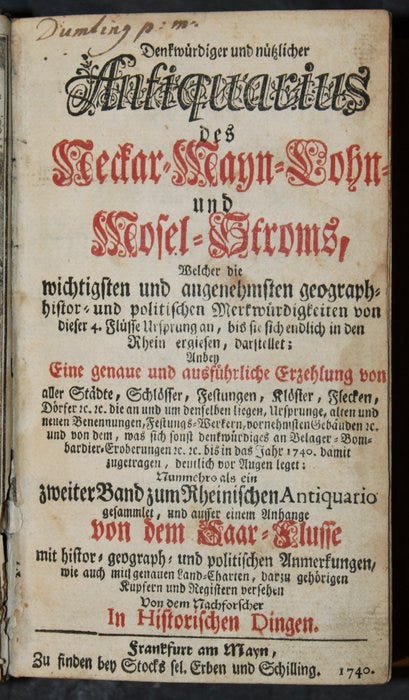 Dumling p: m.
Denkwürdiger und nützlicher
Antiquarius
des
Neckar-Mayn-Lohn-
und
Mosel-Stroms,
Welcher die
wichtigsten und angenehmsten geograph-
histor- und politischen Merkwürdigkeiten von
dieser 4. Flüsse Ursprung an, bis sie sich endlich in den
Rhein ergiesen, darstellet;
Anbey
Eine genaue und ausführliche Erzehlung von
aller Städte, Schlösser, Festungen, Klöster, Flecken,
Dörfer ꝛc. ꝛc. die an und um denselben liegen, Ursprunge, alten und
neuen Benennungen, Festungs-Werkern, vornehmsten Gebäuden ꝛc.
und von dem, was sich sonst denkwürdiges an Belager- Bom-
bardier-Eroberungen ꝛc. ꝛc. bis in das Jahr 1740. damit
zugetragen, deutlich vor Augen leget;
Nunmehro als ein
zweiter Band zum Rheinischen Antiquario
gesammlet, und ausser einem Anhange
von dem Saar-Flusse
mit histor- geograph- und politischen Anmerkungen,
wie auch mit genauen Land-Charten, darzu gehörigen
Kupfern und Registern versehen
Von dem Nachforscher
In Historischen Dingen.
Frankfurt am Mayn,
Zu finden bey Stocks sel. Erben und Schilling. 1740.